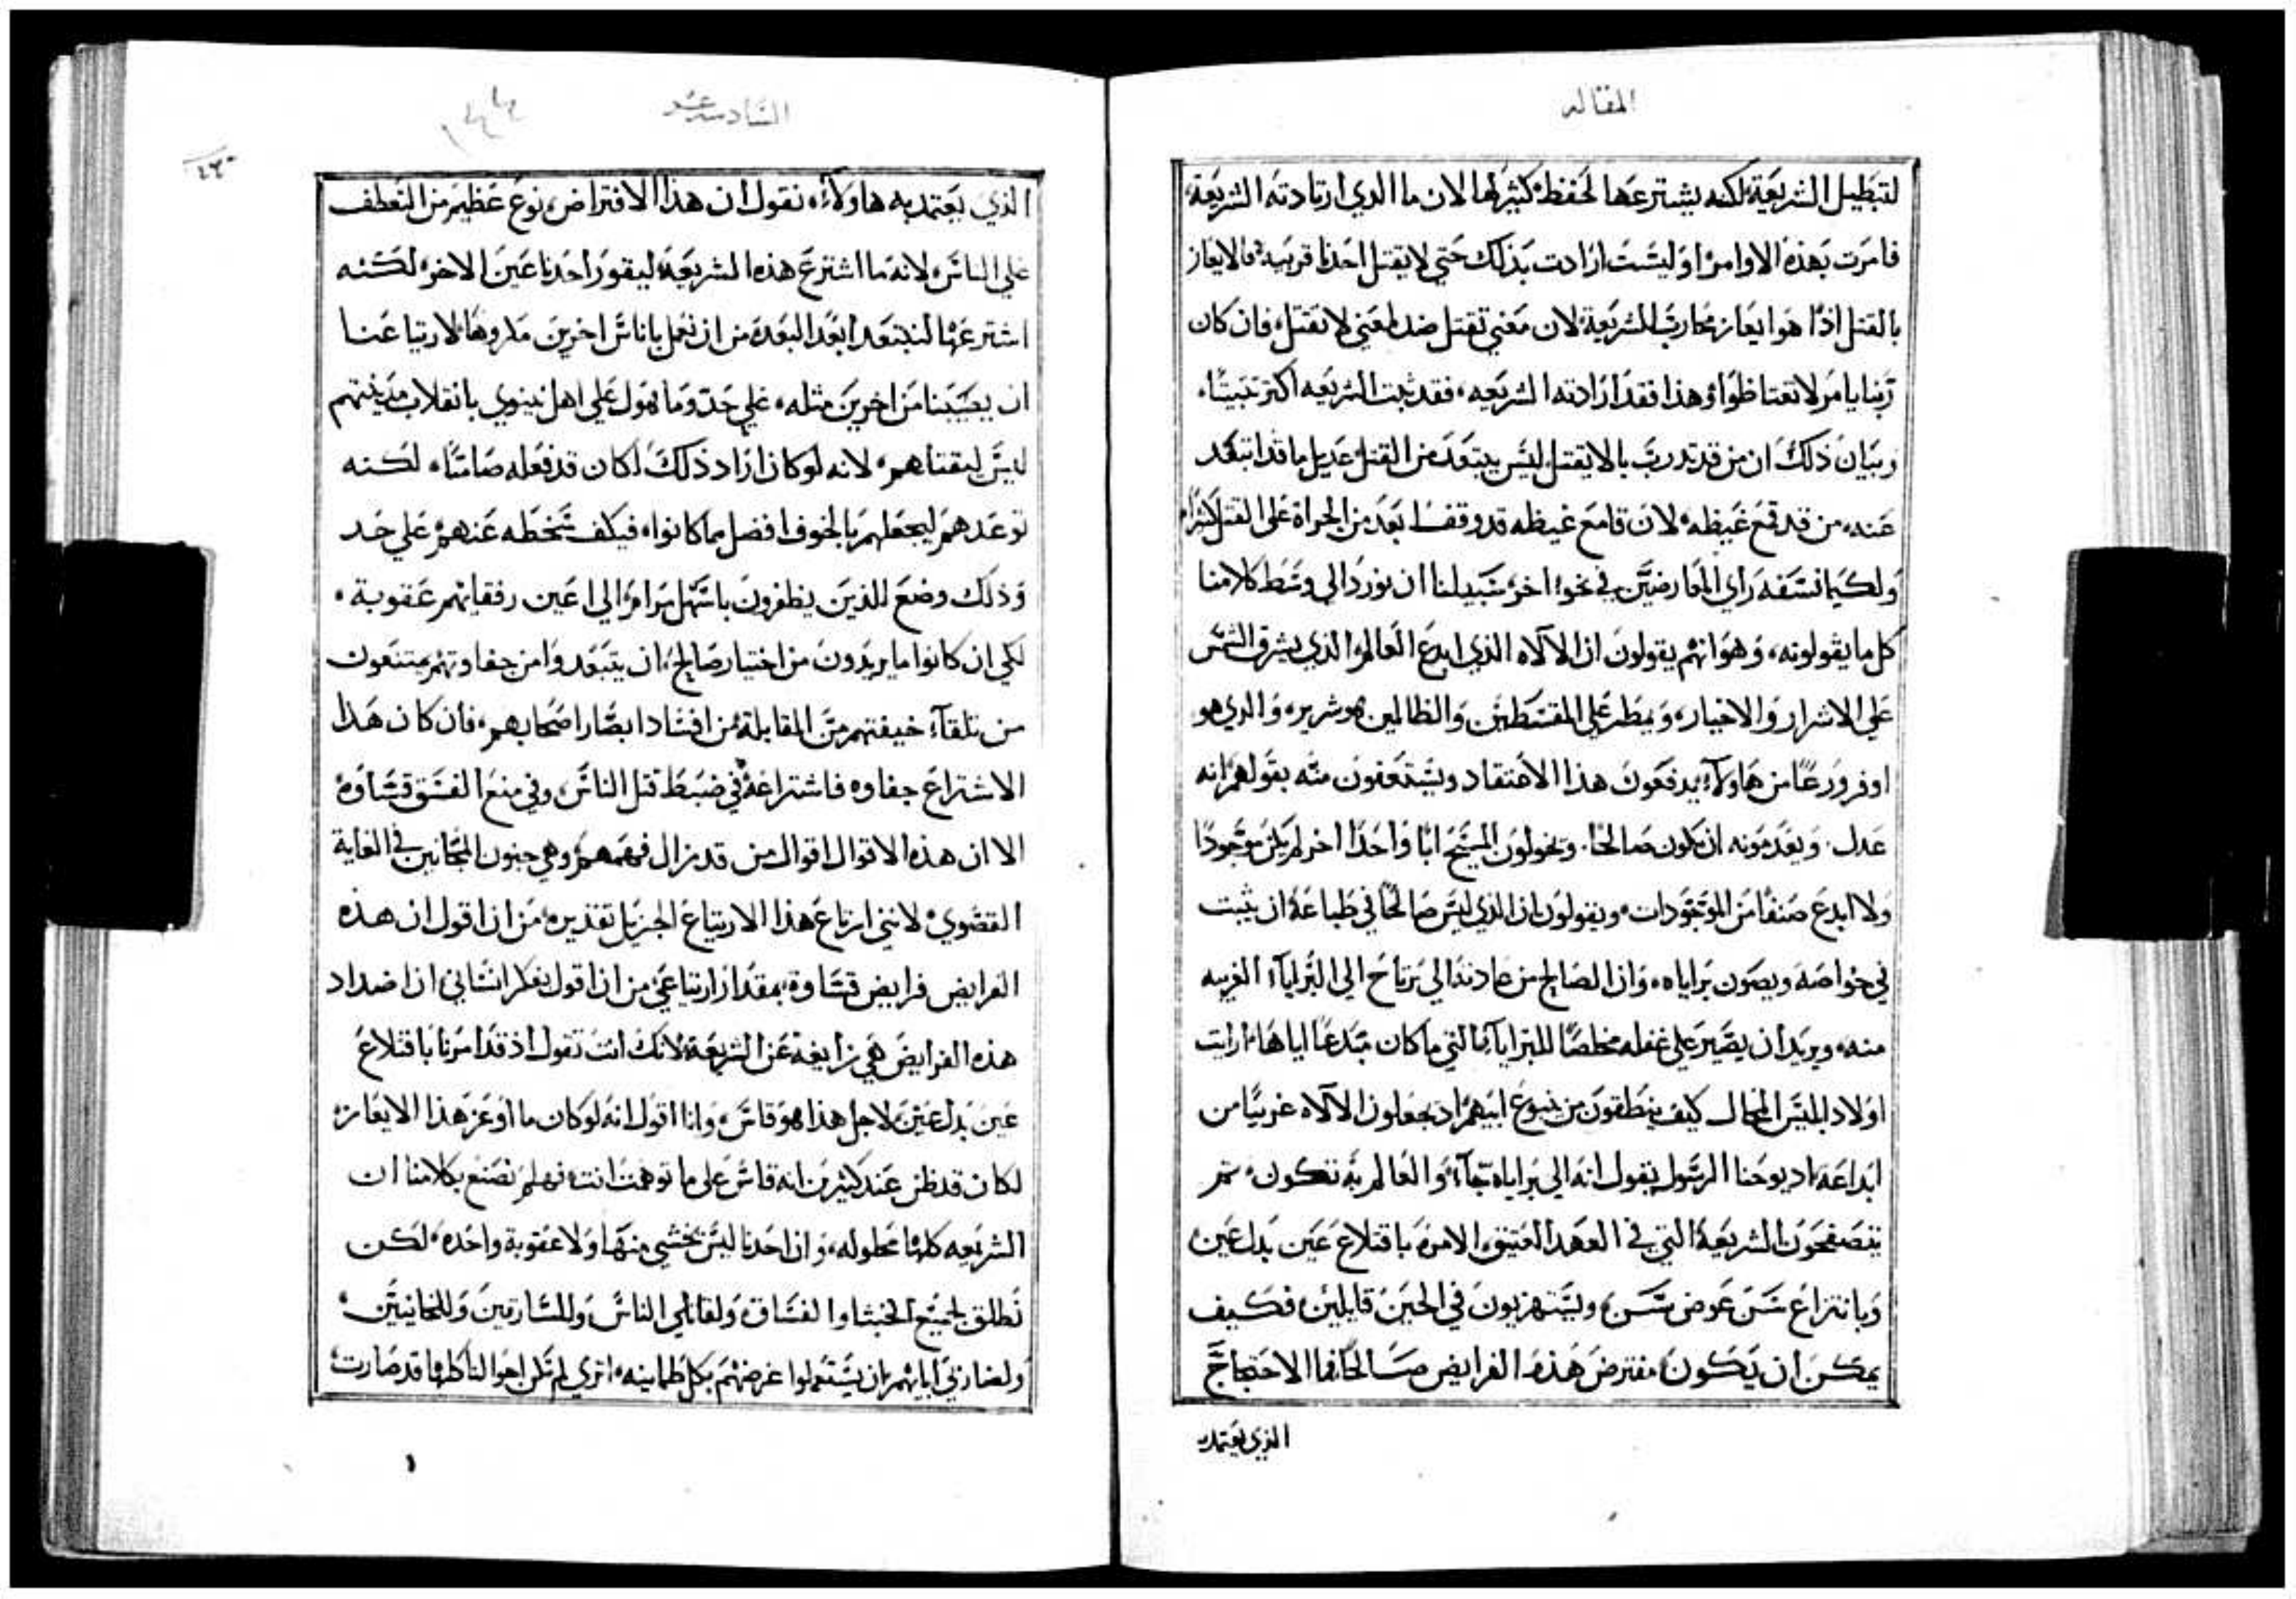 المقاله
لتبطيل الشريعة لكنه يشترعها لحفظ كثير لها لان ما الذي ارتادته الشريعة
فامرت بهذه الاوامر اوليست ارادت بذلك حتي لا يقتل احدنا قريبه فالايعاز
بالقتل اذًا هو ايعاز محارب للشريعة لان معني تقتل ضد لمعني لا تقتل فان كان
ربنا يامر لا تغتاظوا وهذا فقد ارادته الشريعه فقد ثبت الشريعه اكثر تثبيتًا
وبيان ذلك ان من قد تدرب بالا يقتل ليس يبتعد من القتل عديل ما قد ابتعد
عنه من قد قمع غيظه لان قامع غيظه قد وقف ابعد من الجراة علي القتل كثيرًا
ولكيما نسفه راي المعارضين في نحو اخر سبيلنا ان نورد الي وسط كلامنا
كل ما يقولونه وهو انهم يقولون ان الالاه الذي ابدع العالم الذي يشرق الشمس
علي الاشرار والاخيار ويمطر علي المقسطين والظالمين هو شرير والذي هو
اوفر ورعًا من هاولاء يدفعون هذا الاعتقاد ويستعفون منه بقولهم انه
عدل ويعدمونه ان يكون صالحًا ويخولون المسيح ابًا واحدًا اخر لم يكن موجودًا
ولا ابدع صنفًا من الموجودات ويقولون ان الذي ليس صالحًا في طباعه ان يثبت
في خواصه ويصون براياه وان الصالح من عادته الي يرتاح الي البرايا الغريبه
منه ويريد ان يصير علي غفله مخلصًا للبرايا التي ما كان مبدعًا اياها ارايت
اولاد ابليس المحال كيف ينطقون من ينبوع ابيهم اذ يجعلون الالاه غريبًا من
ابداعه اذ يوحنا الرسول يقول انه الي براياه جاء والعالم به تكون ثم
يتصفحون الشريعة التي في العهد العتيق الامرة باقتلاع عين بدل عين
وبانتزاع سن عوض سن ويستهزيون في الحين قايلين فكيف
يمكن ان يكون مفترض هذه الفرايض صالحًا فما الاحتجاج
الذي يعتمد به
السادسه عشر
الذي يعتمد به هاولاء نقول ان هذا الافتراض نوع عظيم من التعطف
علي الناس لانه ما اشترع هذه الشريعة ليقور احدنا عين الاخر لكنه
اشترعها لنبتعد ابعد البعد من ان نعمل باناس اخرين مكروهًا لارتياعنا
ان يصيبنا من اخرين مثله علي حد وما هول علي اهل نينوي بانقلاب مدينتهم
ليس ليقتلهم لانه لو كان اراد ذلك لكان قد فعله صامتًا لكنه
توعدهم ليجعلهم بالخوف افضل مما كانوا فيكف سخطه عنهم علي حد
وذلك وضع للذين يطفرون باسهل مرام الي اعين رفقايهم عقوبة
لكي ان كانوا ما يريدون من اختيار صالح ان يتبعدوا من جفاوتهم يمتنعون
من تلقآء خيفتهم من المقابلة من افساد ابصار اصحابهم فان كان هذا
الاشتراع جفاوه فاشتراعه في ضبط قتل الناس وفي منع الفسق قساوة
الا ان هذه الاقوال اقوال من قد زال فهمهم وهي جنون المجانين في الغاية
القصوي لانني ارتاع هذا الارتياع الجزيل تقديره من ان اقول ان هذه
الفرايض فرايض قساوة بمقدار ارتياعي من ان اقول بفكر انساني ان اضداد
هذه الفرايض هي زايغة عن الشريعة لانك انت تقول اذ قد امرنا باقتلاع
عين بدل عين لاجل هذا هو قاس وانا اقول انه لو كان ما اوعز هذا الايعاز
لكان قد ظن عند كثيرين انه قاس علي ما توهمت انت فهلم نصنع بكلامنا ان
الشريعه كلها محلوله وان احدنا ليس يخشي منها ولا عقوبة واحدة لكن
نطلق لجميع الخبثا والفساق ولقاتلي الناس وللسارقين وللخانيين
ولضاربي ابايهم ان يستعملوا غرضهم بكل طمانينه اتري لم تكن احوالنا كلها قد صارت